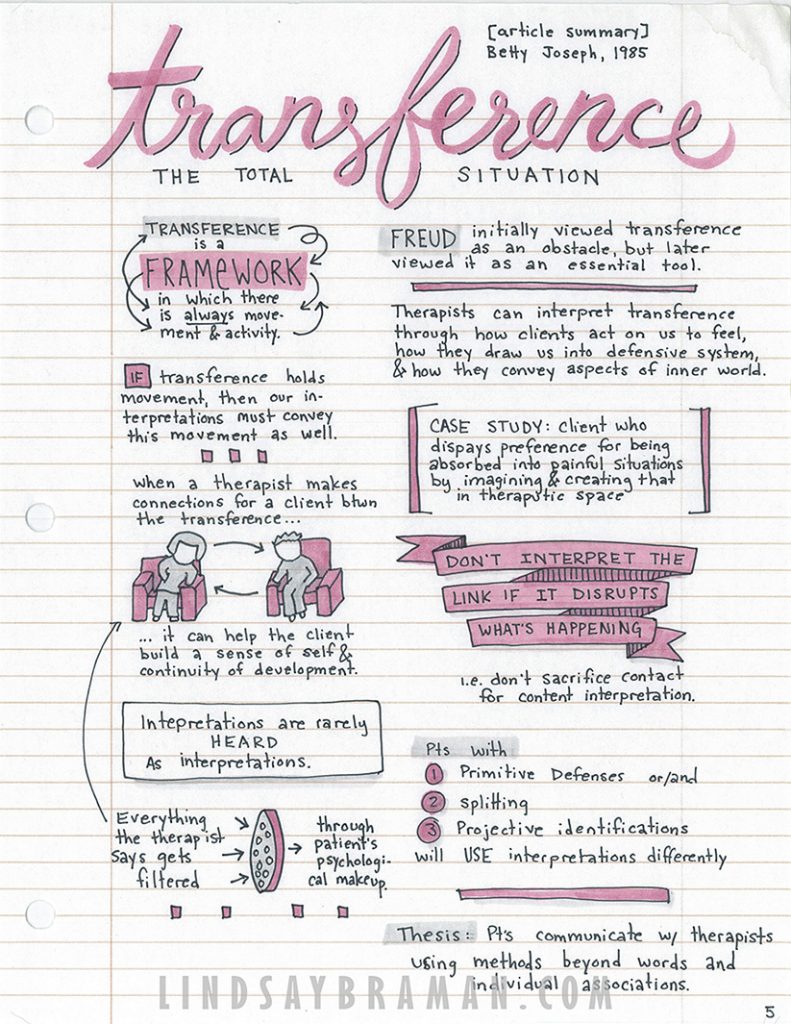 [article summary]
Betty Joseph, 1985
transference
THE TOTAL SITUATION
TRANSFERENCE
is a
FRAMEWORK
in which there
is always move-
ment & activity.
IF transference holds
movement, then our in-
terpretations must convey
this movement as well.
when a therapist makes
connections for a client btwn
the transference...
... it can help the client
build a sense of self &
continuity of development.
Intepretations are rarely
HEARD
As interpretations.
Everything
the therapist
says gets
filtered
through
patient's
psychologi-
cal makeup.
FREUD initially viewed transference
as an obstacle, but later
viewed it as an essential tool.
Therapists can interpret transference
through how clients act on us to feel,
how they draw us into defensive system,
& how they convey aspects of inner world.
CASE STUDY: client who
dispays preference for being
absorbed into painful situations
by imagining & creating that
in theraputic space
DON'T INTERPRET THE
LINK IF IT DISRUPTS
WHAT'S HAPPENING
i.e. don't sacrifice contact
for content interpretation.
Pts with
1 Primitive Defenses or/and
2 splitting
3 Projective identifications
will USE interpretations differently
Thesis: Pt's communicate w/ therapists
using methods beyond words and
individual associations.
LINDSAYBRAMAN.COM
5